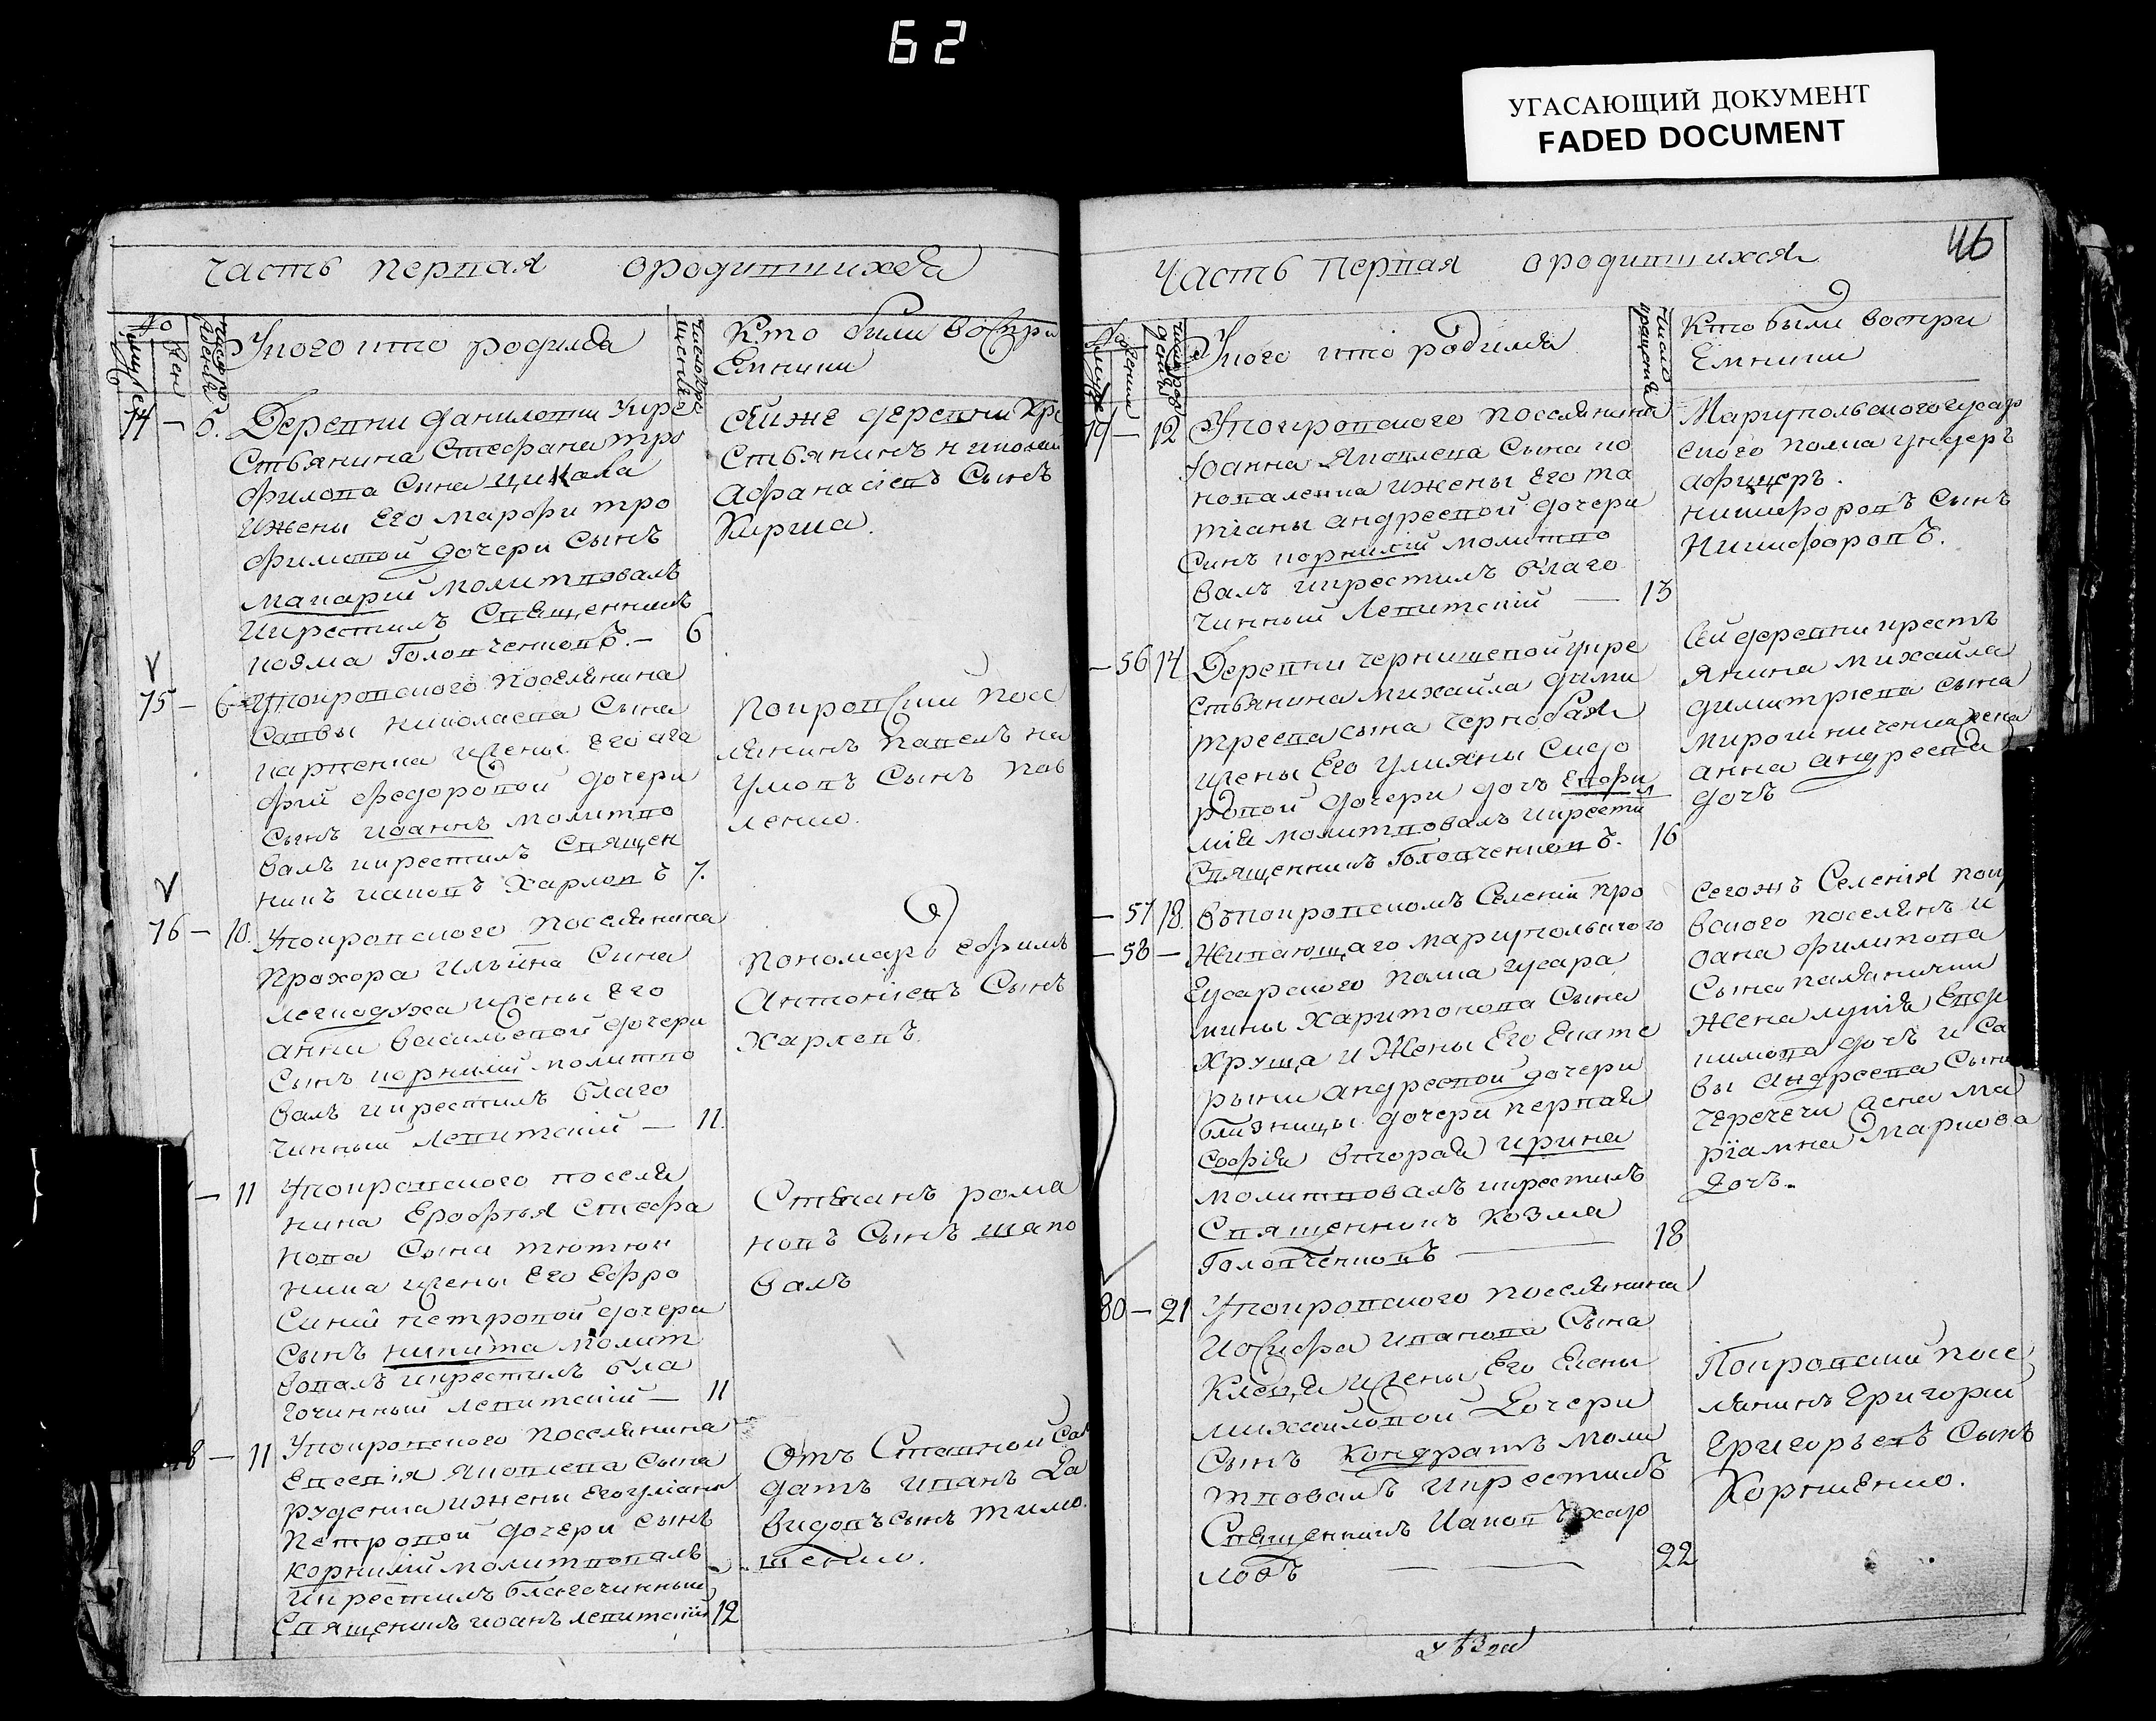 62
УГАСАЮЩИЙ ДОКУМЕНТ
FADED DOCUMENT
Часть первая о родившихся
У кого кто родился
Кто были воспри
Емники
74 – 5. Деревни Даниловки у кре
стьянина Стефана тро
филова Сына Цикала
и жены Его Марфи тро
фимовой дочери Сынъ
Макарий молитвовалъ
и крестилъ Священникъ
козма Головченковъ. – 6
Сей же деревни кре
стьянинъ николай
Афанасіевъ Сынъ
Кирша.
75 – 6 У покровского поселянина
Саввы николаева Сына
и жены Его ага
фии федоровой дочери
Сынъ иоаннъ молитво
валъ и крестилъ Священ
никъ иаковъ Харловъ 7.
покровский посе
лянинъ павелъ на
умовъ Сынъ пав
ленко.
76 – 10. У покровского поселянина
прохора ильина Сина
легкодуха и жены Его
анни васильевой дочери
Сынъ корнилий молитво
валъ и крестилъ благо
чинный Левитский – 11.
пономарь ефимъ
Антоніевъ Сынъ
Харлевъ
– 11 У покровского поселя
нина Ерофѣя Стефа
нова Сына тютюн
ника и жены Его Ефро
Синіи петровой дочери
Сынъ никита молит
вовалъ и крестилъ бла
гочинный левитский – 11
Степанъ рома
новъ Сынъ шапо
валъ
78 – 11 У покровского поселянина
Евсевія Яковлева Сына
руденка и жены Его уляны
петровой дочери Сынъ
корнилий молитвовалъ
и крестилъ благочинный
Священикъ иоанъ левитский 12
Отъ Ставной Сол
датъ иванъ Да
видовъ сынъ тимо
шенко.
46
Часть первая о родившихся
У кого кто родился
число крещенія
Кто были воспри
Емники
79 – 12 У покровского поселянина
Иоанна Яковлева Сына ко
новаленка и жены Его та
тіаны андреевой дочери
Синъ корнилій молитво
валъ и крестилъ благо
чинный Левитский – 13
Мариупольского гусар
ского полка ундеръ
афицеръ.
никифоровъ Сынъ
Никифоровъ.
– 56 14 Деревни чернишевой у кре
стьянина михаила дими
треева сына Чернобая
и жены Его улияны Сидо
ровой дочери дочь Евфи
мія молитвовалъ и крести
Священникъ Головченковъ. 16
Сей деревни кресть
янина михаила
димитриева сына
мирошниченка жена
анна андреева
дочъ
– 57 18. въ покровскомъ Селеніи про
– 58 – живающаго мариупольского
гусарского полка гусара
мины харитонова Сына
Хруща и жены Его Екате
рыни андреевой дочери
близницы дочери первая
Софія вторая ирина
молитвовалъ и крестилъ
Священникъ козма
Головченковъ 18
Сегожъ Селенія покр
вского поселянъ и
оана филипова
Сына паляници
жена лукія Евдо
кимова дочъ и Са
вы андреева Сына
черечечи жена Ма
ріамна Маркова
Дочъ.
80 – 21 У покровского поселянина
Иосифа иванова Сына
Клеща и жены Его Елены
михайловой Дочери
Сынъ Кондратъ моли
твовалъ и крестилъ
Священникъ Иаковъ хар
ловъ 22
Покровский посе
лянинъ Григорий
Григорьевъ Сынъ
Коршенко.